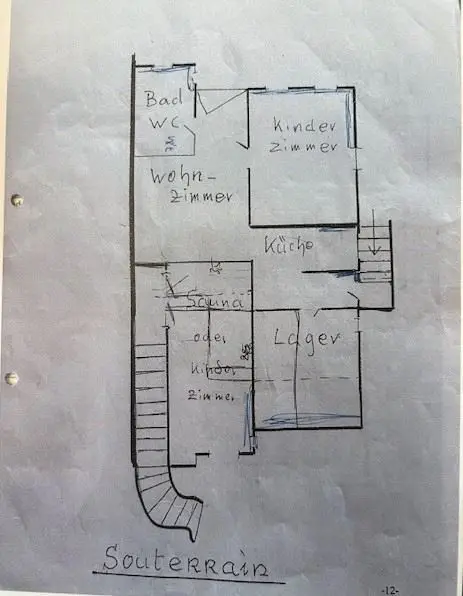 Bad
WC
Kinder
zimmer
Wohn-
zimmer
Küche
Sauna
oder
Kinder
zimmer
Lager
Souterrain
-12-